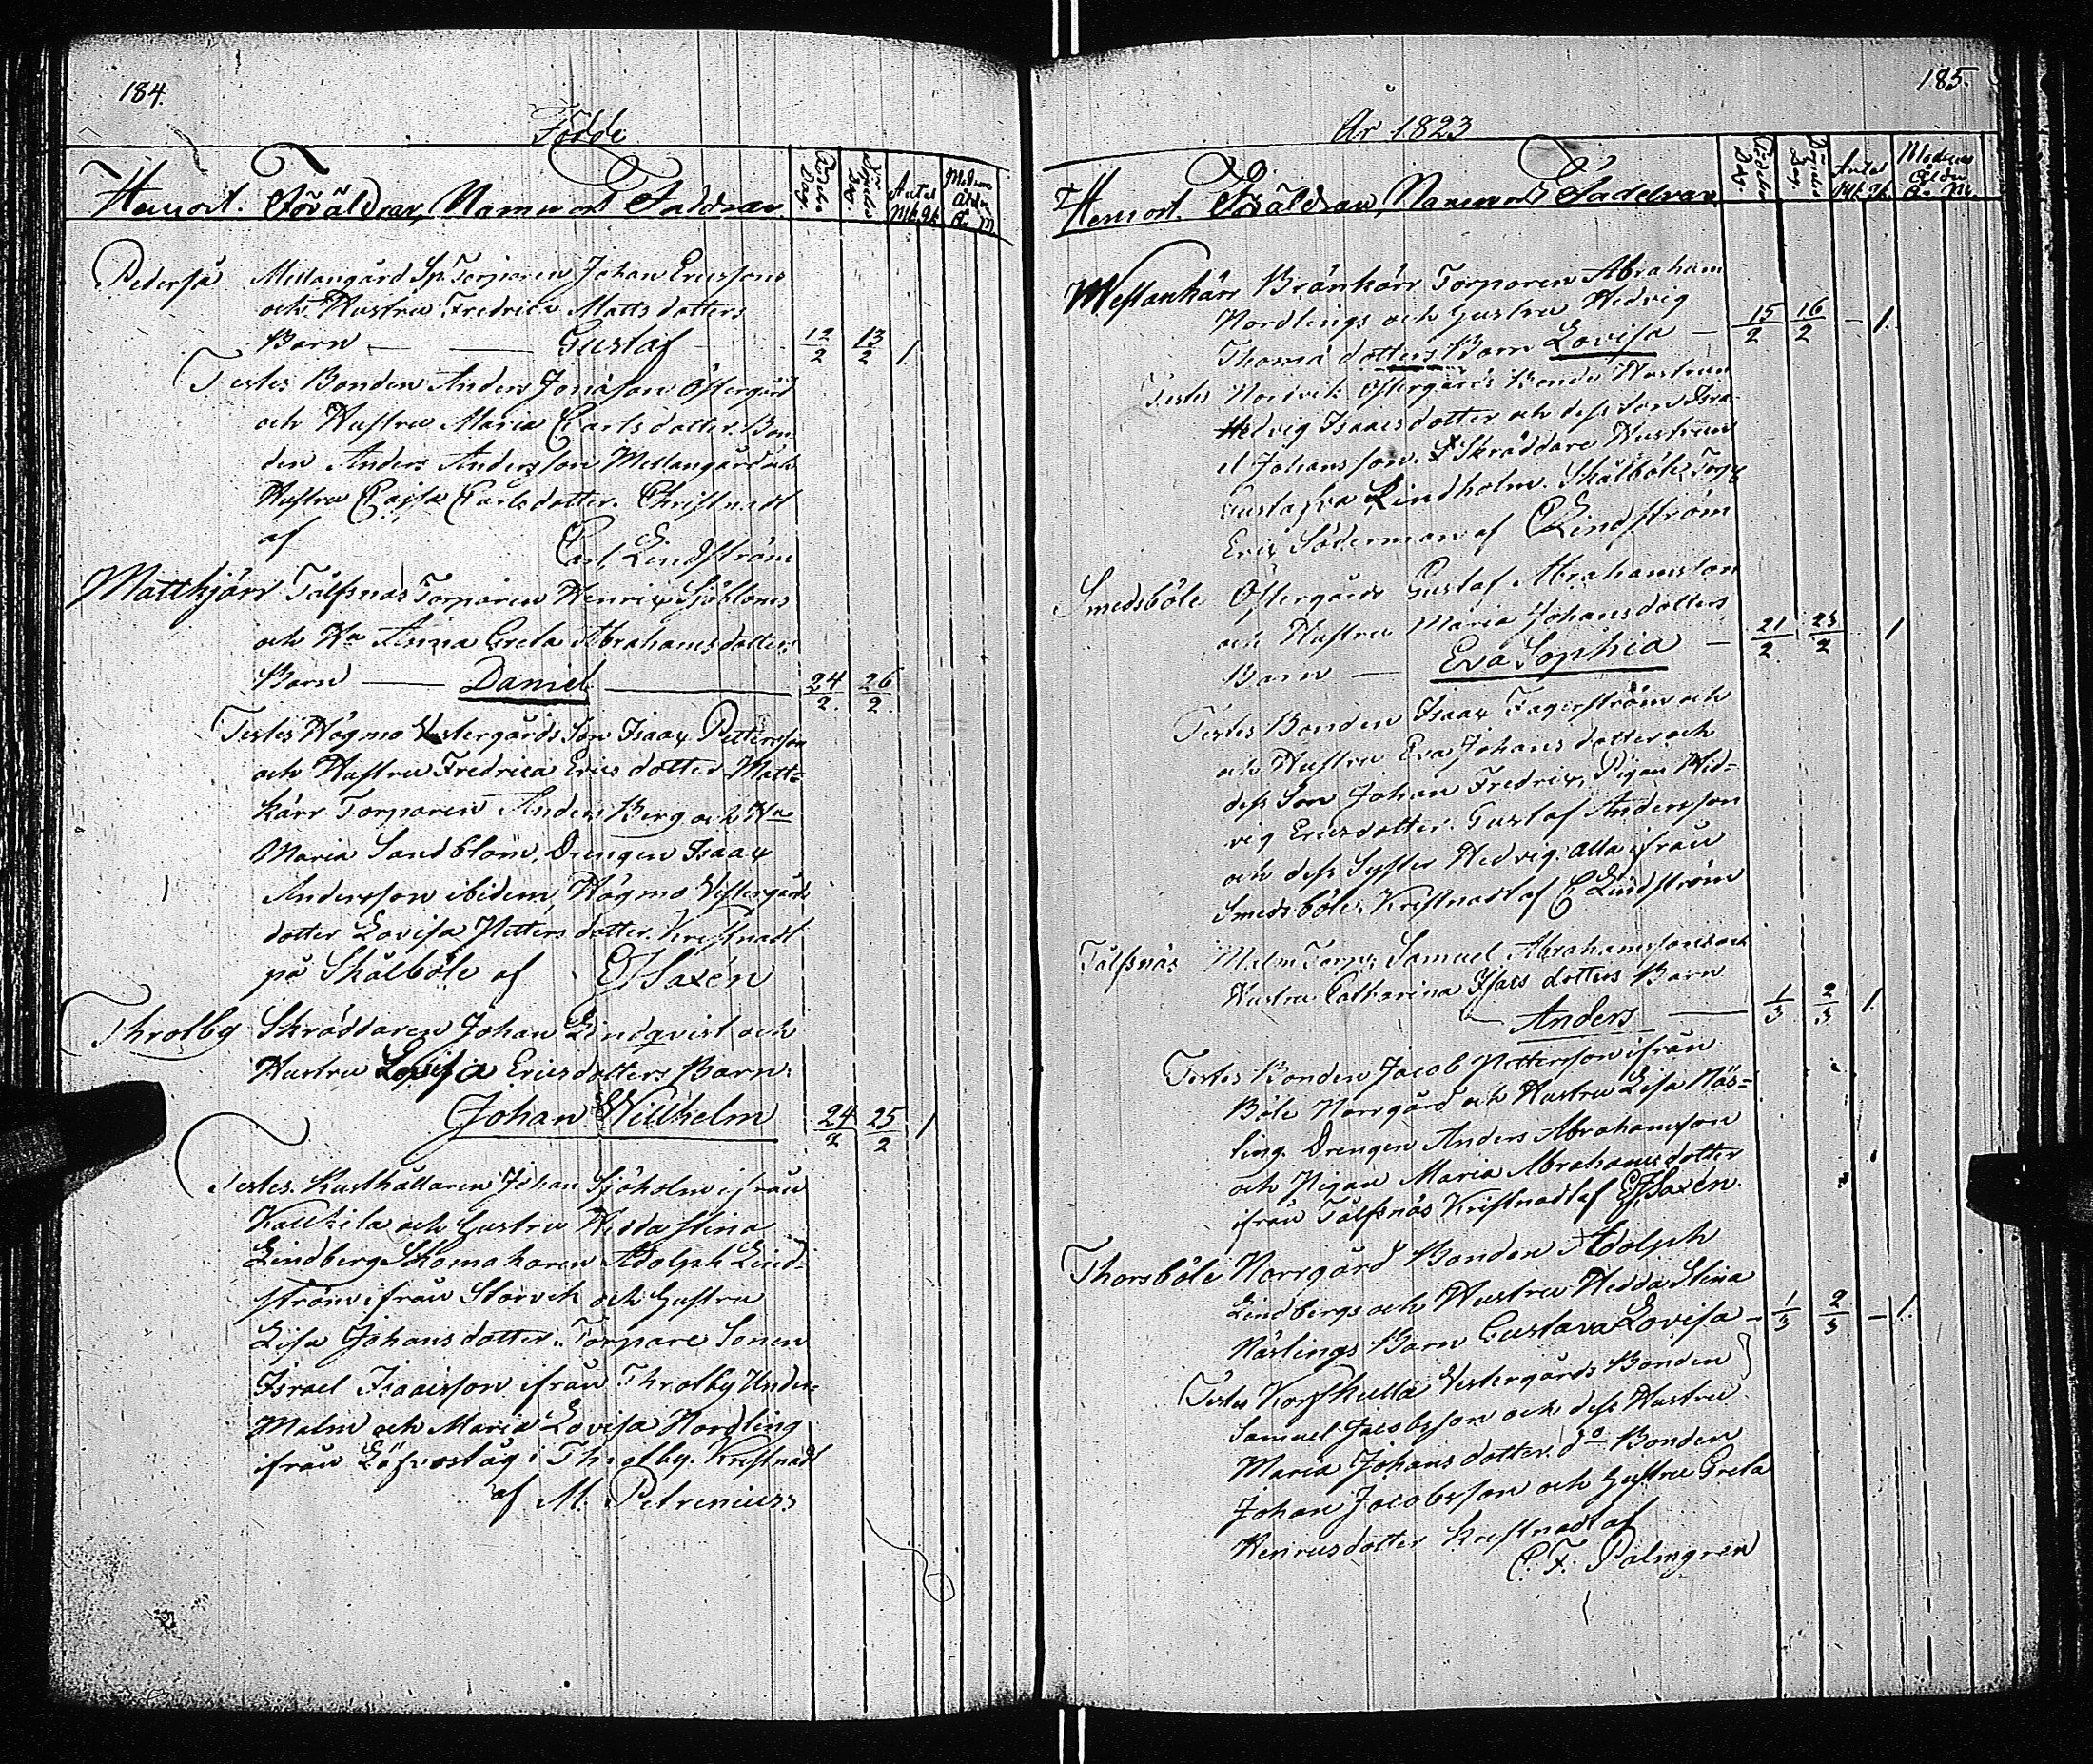 184.
Födde
Hemort. Föräldrar, Namn och Faddrar
Födelse Dag.
Döpelse Dag.
Antal
Mk. Qk.
Modrens Ålder
År M.
Pederså Mellangård Sp. Torparen Johan Ericssons
och Hustru Fredrica Mattsdotters
Barn — Gustaf 12/2 13/2 1.
Testes Bonden Anders Jonason Östergård
och Hustru Maria Carlsdotter. Bon
den Anders Andersson Mellangård och
Hustru Cajsa Carlsdotter. Christnadt
af
Carl Lindström
Mattkjärr Tälssnäs Torparen Henrix Sjöbloms
och Hu Anna Greta Abrahamsdotters
Barn — Daniel — 24/2. 26/2.
Testes Högmo Vestergårds Son Isaax Pettersson
och Hustru Fredrica Ericsdotter Matt-
kärr Torparen Anders Berg och Hu
Maria Sandblom, Drengen Isaax
Andersson ibidem, Högmo Vestergårds
dotter Lovisa Pettersdotter. Kristnadt
på Skålböle af EJSaxén
Throlby Skräddaren Johan Lindqvist och
Hustru Lovisa Ericsdotters Barn.
Johan Willhelm 24/2 25/2 1
Testes. Rusthållaren Johan Sjöholm ifrån
Kaukila och Hustru Hedda Stina
Lindberg Skomakaren Adolph Lind-
ström ifrån Storvik och Hustru
Lisa Johansdotter. Torpare Sonen
Israel Isaacsson ifrån Throlby Under-
Malm och Maria Lovisa Nordling
ifrån i Throlby. Kristnadt
af M. Petrenius
185.
År 1823
Hemort. Föräldrar, Namn och Faddrar
Födelse Dag.
Döpelse Dag.
Antal
Mk. Qk.
Modrens Ålder
År M.
Westankärr Brönkärr Torparen Abraham
Nordlings och Hustru Hedvig
Thomædotters Barn Lovisa — 15/2 16/2 — 1.
Testes Norrvik Östergårds Bonde Hustrun
Hedvig Isaacsdotter och dess Son Isra-
el Johansson. Skräddare Hustrun
Gustafva Lindholm. Skålböle Torp
Erix Söderman af CLindström
Smedsböle Östergårds Gustaf Abrahamsson
och Hustru Maria Johansdotters
Barn — Eva Sophia — 21/2 23/2 1
Testes Bonden Isaax Fagerström och
och Hustru Eva Johansdotter och
dess Son Johan Fredrix, Pigan Hed-
vig Ericsdotter. Gustaf Andersson
och dess Syster Hedvig. alla ifrån
Smedsböle. Kristnadt af C Lindström
Tälssnäs Malm Torp. Samuel Abrahamssons och
Hustru Catharina Isacsdotters Barn
— Anders — 1/3 2/3 1.
Testes Bonden Jacob Pettersson ifrån
Böle Norrgård och Hustru Lisa Näs-
ling. Drengen Anders Abrahamsson
och Pigan Maria Abrahamsdotter
ifrån Tälssnäs Kristnadt af EJSaxén.
Thorsböle Norrgård Bonden Adolph
Lindbergs och Hustru Hedda Stina
Näslings Barn Gustava Lovisa — 1/3 2/3 — 1.
Testes Korskulla Vestergårds Bonden
Samuel Jacobsson och dess Hustru
Maria Johansdotter. do Bonden
Johan Jacobsson och Hustru Greta
Henricsdotter Kristnadt af
C. F. Palmgren